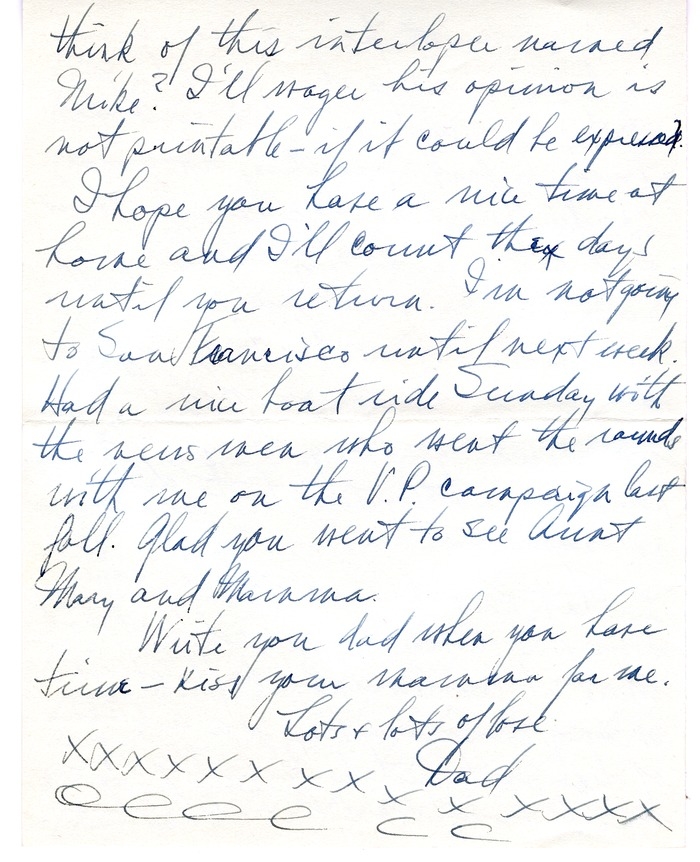 think of this interloper named
Mike? I'll wager his opinion is
not printable - if it could be expressed.
I hope you have a nice time at
home and I'll count the days
until you return. I'm not going
to San Francisco until next week.
Had a nice boat ride Sunday with
the news men who went the rounds
with me on the V.P. campaign last
fall. Glad you went to see Aunt
Mary and Mamma.
Write you dad when you have
time - Kiss your mamma for me.
Lots & lots of love
Dad
xxxxxxx xx
x x xxxx